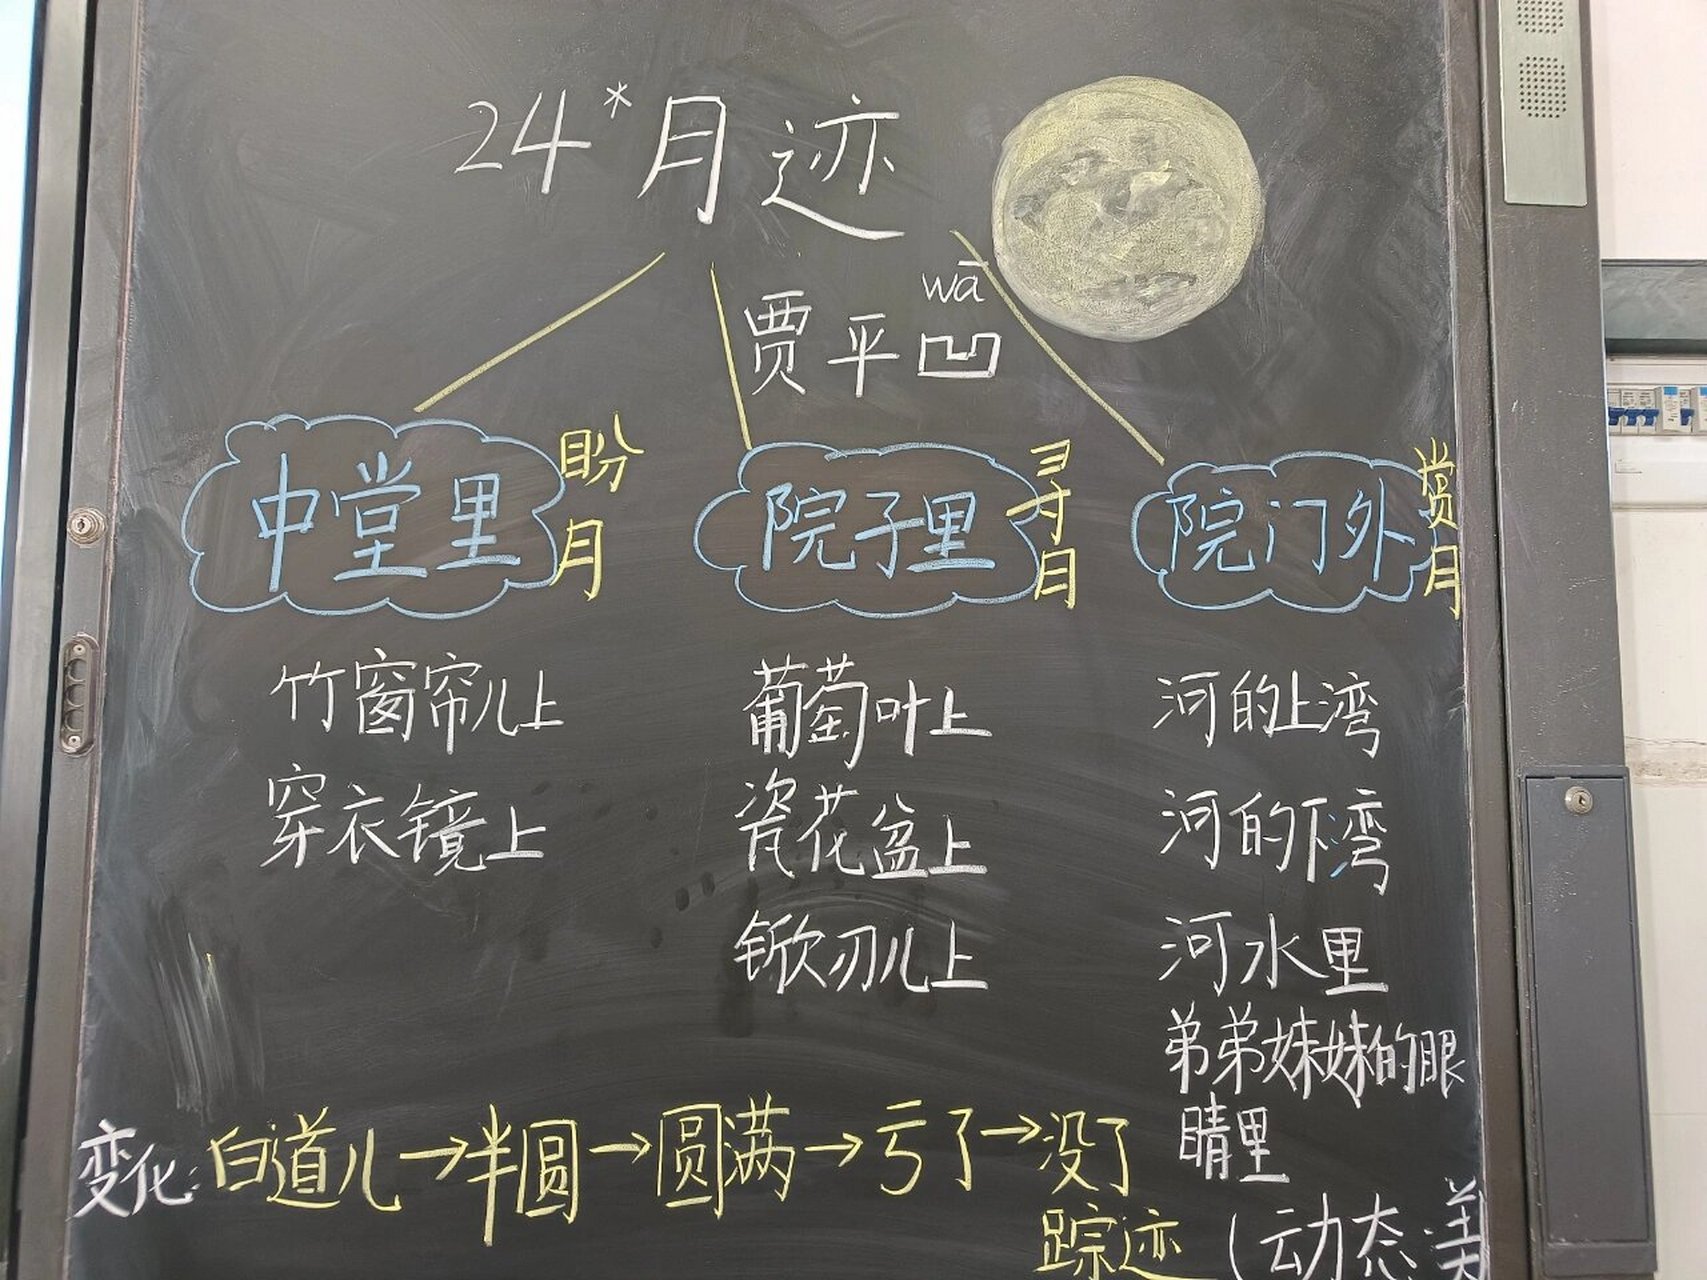 24*月迹
wā
贾平凹
中堂里 盼月
院子里 寻月
院门外 赏月
竹窗帘儿上
穿衣镜上
葡萄叶上
瓷花盆上
锨刃儿上
河的上湾
河的下湾
河水里
弟弟妹妹的眼
睛里
变化:白道儿→半圆→圆满→亏了→没了
踪迹(动态美